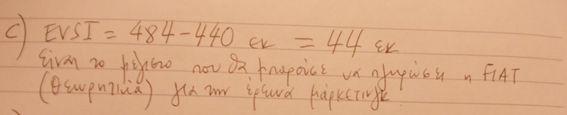 c) EVSI = 484 - 440 εκ = 44 εκ
Είναι το μέγιστο που θα μπορούσε να πληρώσει η FIAT
(θεωρητικά) για την έρευνα μάρκετινγκ